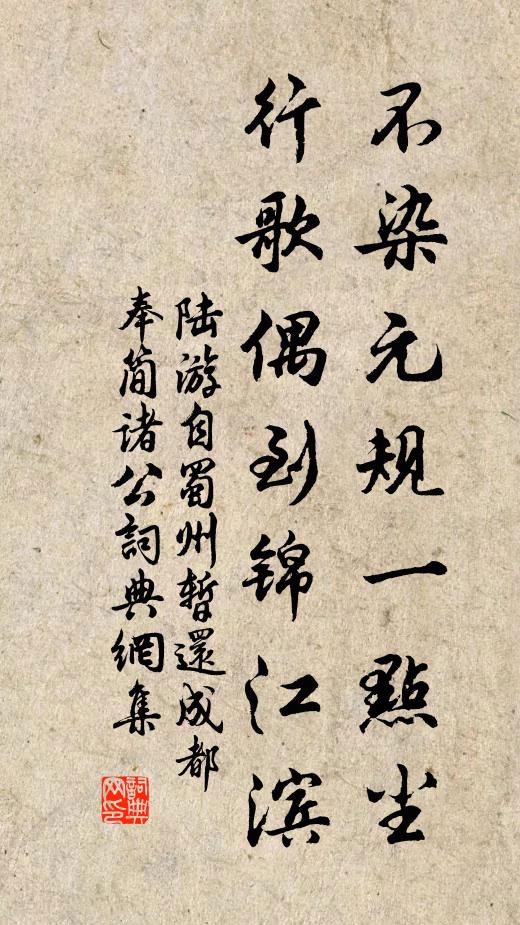 不染元规一點尘
行歌偶到锦江滨
陆游自蜀州暫還成都
奉简诸公詞典網集
詞典
网印